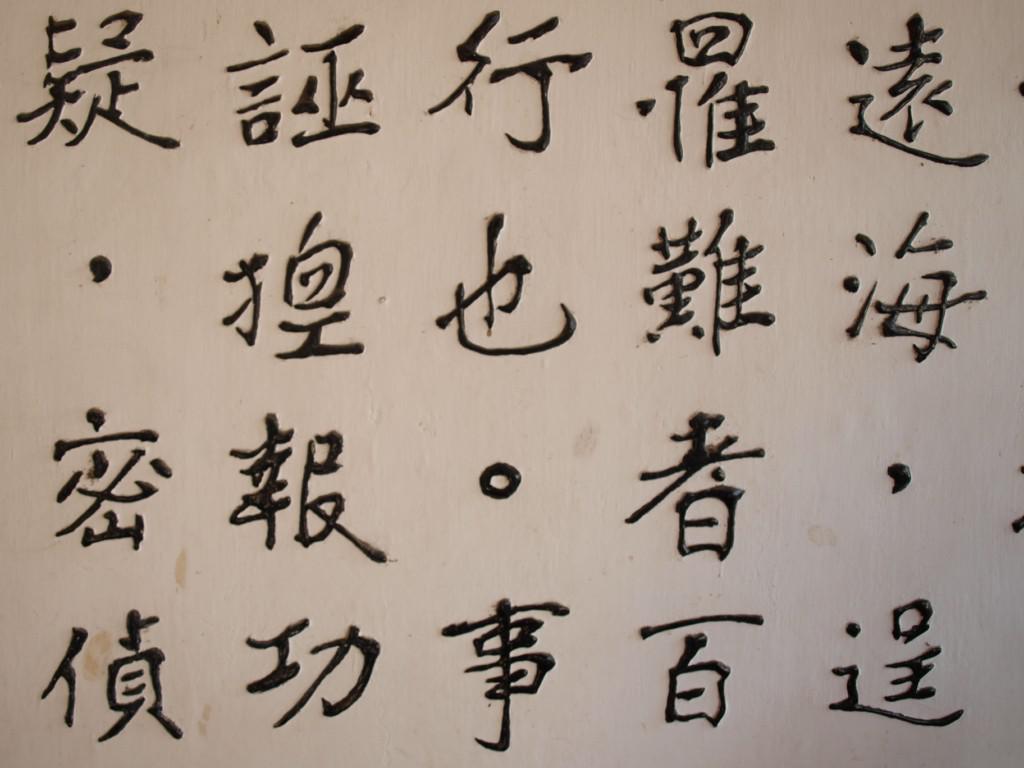 遠海，逞
罹難者百
行也。事
誣揑報功
疑，密偵